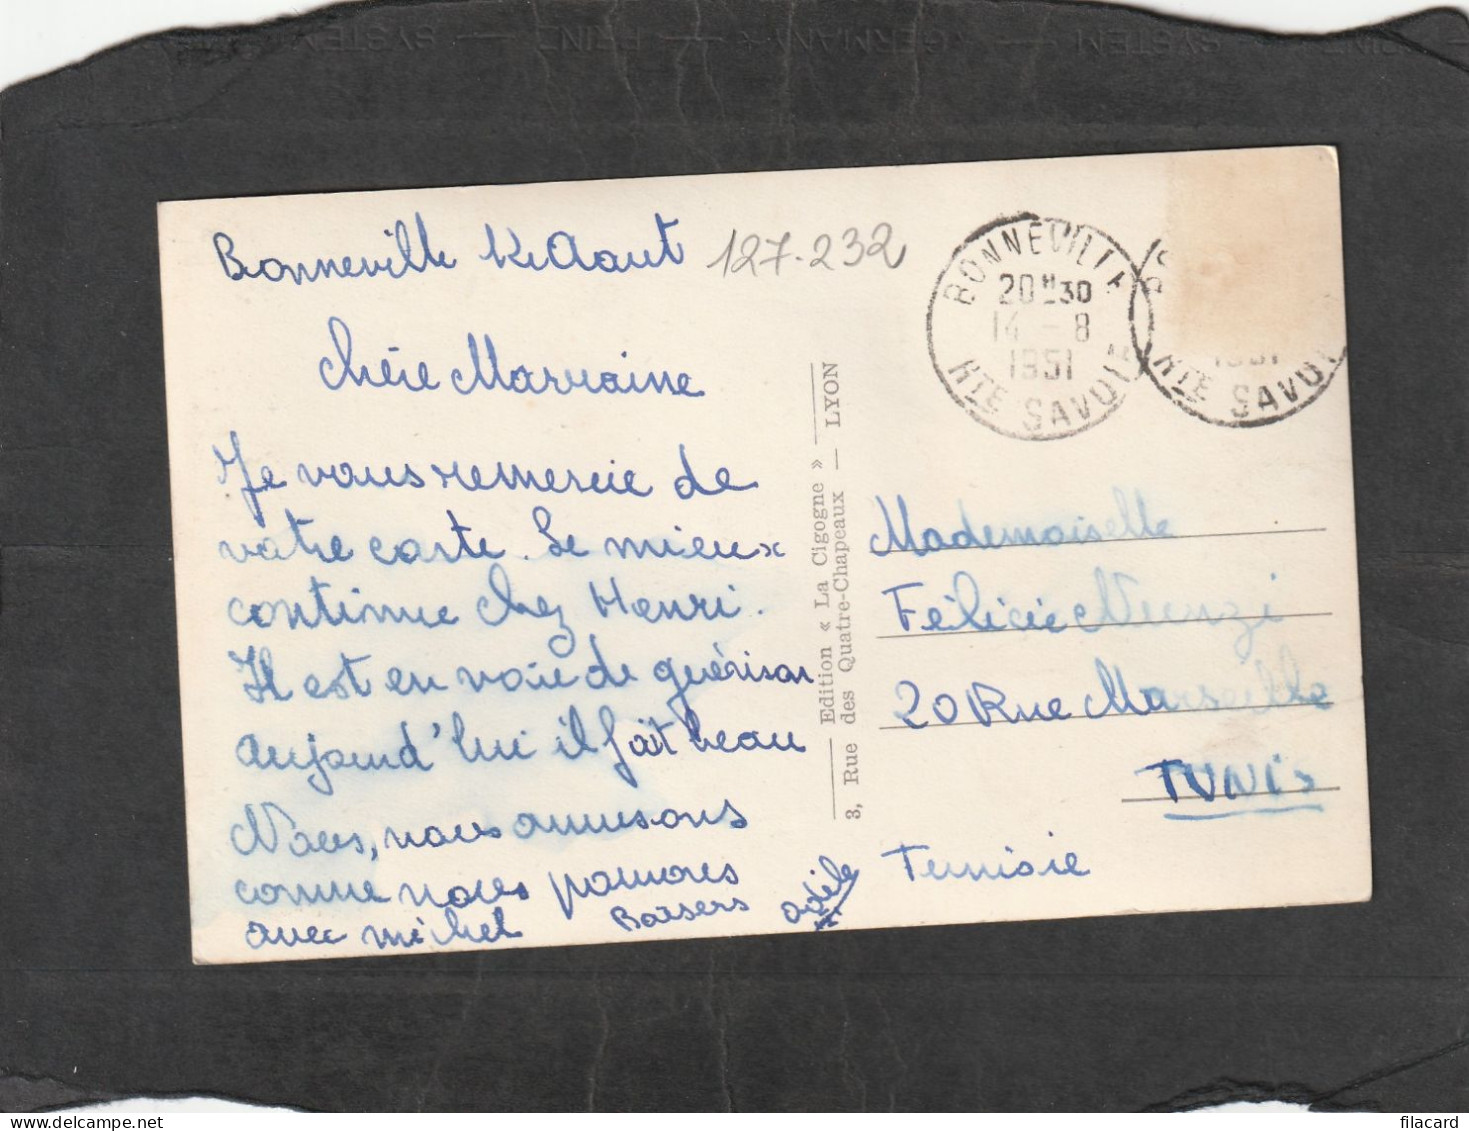 Bonneville le Août
127-232
chère Marraine
Je vous remercie de
votre carte. Le mieux
continue chez Henri.
Il est en voie de guérison
aujourd'hui il fait beau
Nous, nous amusons
comme nous pouvons
avec michel
Baisers
Odile
Edition « La Cigogne »
3, Rue des Quatre-Chapeaux — LYON
BONNEVILLE
20H30
14 - 8
1951
HTE SAVOIE
1951
HTE SAVOIE
Mademoiselle
Félicie
20 Rue Marseille
TUNIS
Tunisie
PRINZ SYSTEM GERMANY
filacard